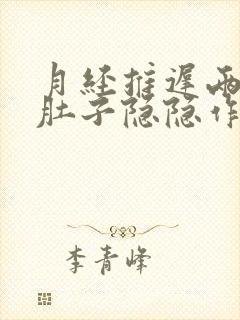 月经推迟两
肚子隐隐作
李青峰